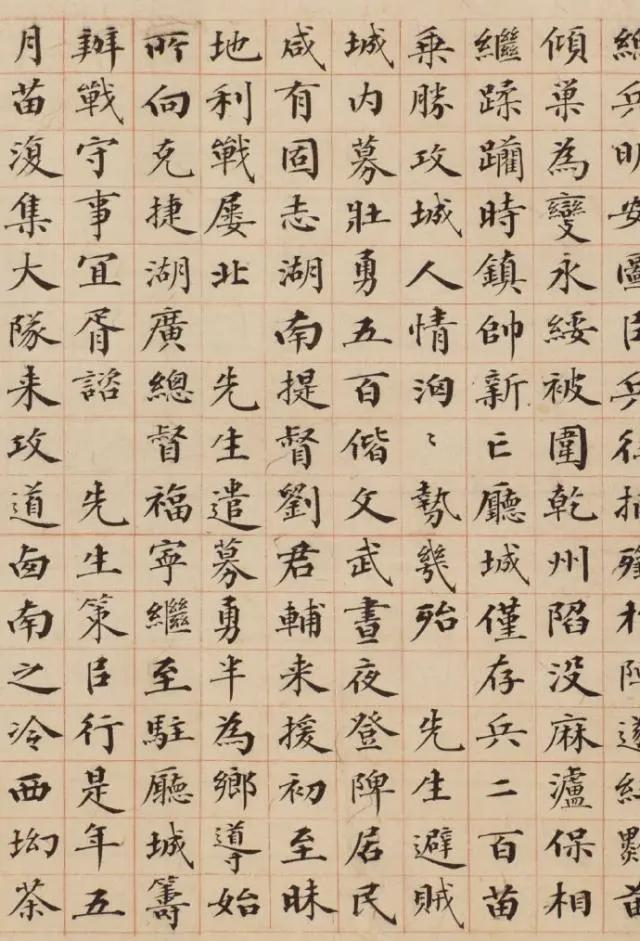 總兵明安圖
傾巢為變永綏被圍乾州陷没麻瀘保相
繼蹂躪時鎮帥新亡廳城僅存兵二百苗
乗勝攻城人情洶〻勢幾殆 先生避賊
城内募壯勇五百偕文武晝夜登陴居民
咸有固志湖南提督劉君輔来援初至昧
地利戰屡北 先生遣募勇半為鄉導始
所向克捷湖廣總督福寧繼至駐廳城籌
辦戰守事冝胥諮 先生策臣行是年五
月苗復集大隊来攻道南之冷西坳茶